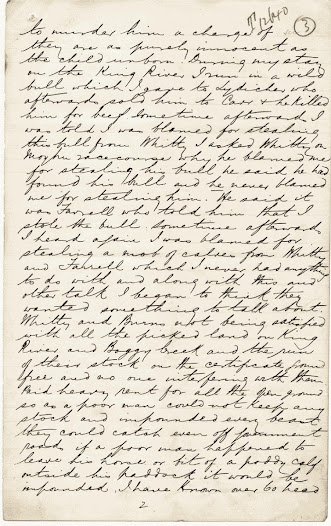 3
to murder him a charge of
they are as purely innocent as
the child unborn. During my stay
on the King River I run in a wild
bull which I gave to Lydicher who
afterwards sold him to Carr & he killed
him for beef Sometime afterwards I
was told I was blamed for stealing
this bull from Whitty I asked Whitty on
Moyhu racecourse why he blamed me
for stealing his bull he said he had
found his bull and he never blamed
me for stealing him. He said it
was Farrell who told him that I
stole the bull. Sometime afterwards
I heard again I was blamed for
stealing a mob of calves from Whitty
and Farrell which I never had anything
to do with and along with this and
other talk I began to think they
wanted something to talk about.
Whitty and Burns not being satisfied
with all the picked land on King
River and Boggy Creek and the run
of their stock on the certificate ground
free and no one interfering with them
Paid heavy rent for all the open ground
so as a poor man could not keep any
stock and impounded every beast
they could catch even off Government
roads if a poor man happened to
leave his horse or bit of a poddy calf
outside his paddock it would be
impounded, I have known over 60 head
2